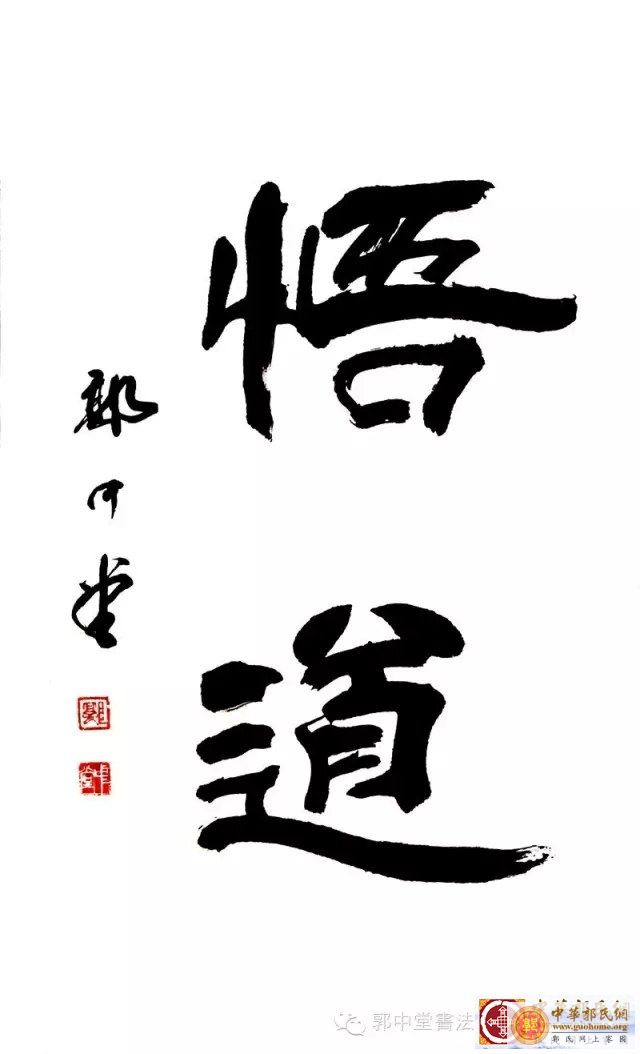 悟道
郭中堂
郭
中堂
郭中堂書法
中華郭氏網
www.guohome.org
郭氏网上家園